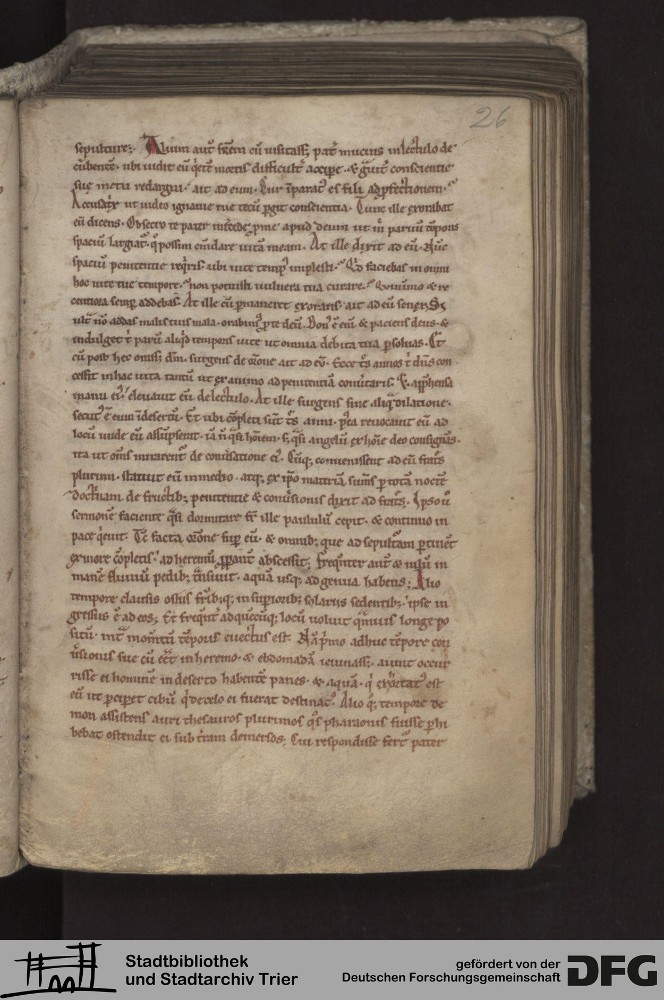 26
sepulture. Alium aut frem cu uisitass pat mucius in lectulo de
cubente. ubi uidit eu qete mortis difficult accipe. & guit conscientie
sue metu redargui. ait ad eum. Cur iparat es fili ad pfectionem.
Accusatr ut uideo ignauie tue tecu pgit conscientia. Tunc ille exorabat
eu dicens. Obsecro te pater intcede p me apud deum ut m paruu tporis
spaciu largiat. q possim emdare uita meam. At ille dixit ad eu. Nuc
spaciu penitentie reqris. ubi uite temp implesti. Qd faciebas in omni
hoc uite tue tempore. non potuisti uulnera tua curare.
centiora semp addebas. At ille cu pmaneret exorans. ait ad eu senex. Si
ult no addas malis tuis mala. orabim p te deu. Bon e em & paciens deus. &
indulget t paru aliqd temporis uite ut omnia debita tua psoluas. Et
cu post hec omis dm. surgens de oone ait ad eu. Ecce tes annos t dns con
cessit in hac uita tantu ut ex animo ad penitentia conutaris. & apphensa
manu ei. eleuauit eu de lectulo. At ille surgens sine aliqa dilatione.
secut e eum i desertu. Et ubi copleti sunt tes anni. pea reuocauit eu ad
locu unde eu assupserat. ia n qsi hoiem. s qsi angelu ex hoie deo consignas.
ita ut oms mirarent de conusatione ei. Cuq; conuenissent ad eu frats
plurimi. statuit eu in medio. atq; ex ipso materia sumes p tota nocte
doctnam de fructib; penitentie & conusionis dixit ad frats. Ipso u
sermone faciente qsi dormitare fr ille paululu cepit. & continuo in
pace qeuit. Tc facta oone sup eu. & omnib; que ad sepultam ptinet
ex more copletis. ad heremu ppant abscessit. Frequnter aut & nilu in
mane fluuiu pedib; tnsiuit. aqua usq; ad genua habens. Alio
tempore clausis ostiis frib;q; in supiorib; solariis sedentib;. ipse in
gressus e ad eos. Et frequnt ad quecuq; locu uoluit qmuis longe po
situ. int momtu tporis euectus est. Na pmo adhuc tpore con
usionis sue cu eet in heremo. & ebdomada ieiunass. aiunt occur
risse ei homine in deserto habente panes. & aqua. q exortat est
eu ut pcipet cibu q de celo ei fuerat destinat. Alio q; tempore de
mon assistens auri thesauros plurimos qs pharaonis fuisse phi
bebat ostendit ei sub tram demersos. Cui respondisse fert pater
Stadtbibliothek
und Stadtarchiv Trier
gefördert von der
Deutschen Forschungsgemeinschaft
DFG